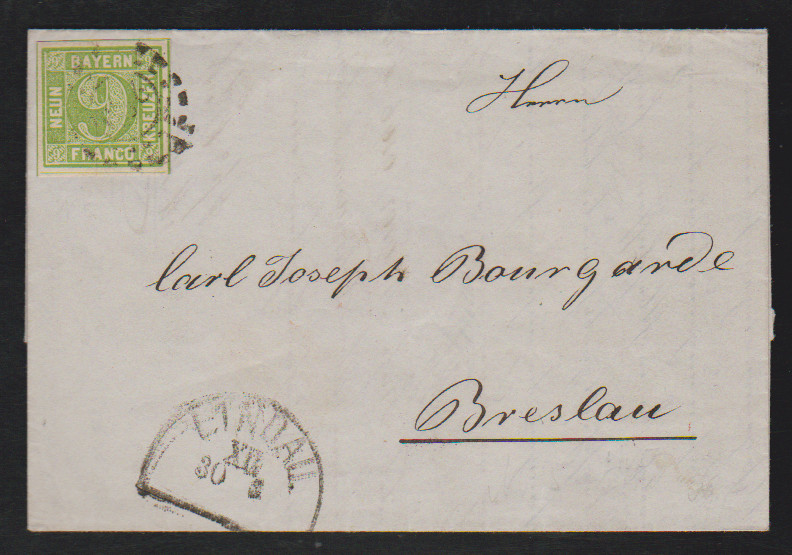 BAYERN
NEUN
9
KREUZER
FRANCO
Herrn
Carl Joseph Bourgarde
Breslau
LINDAU
XII
30